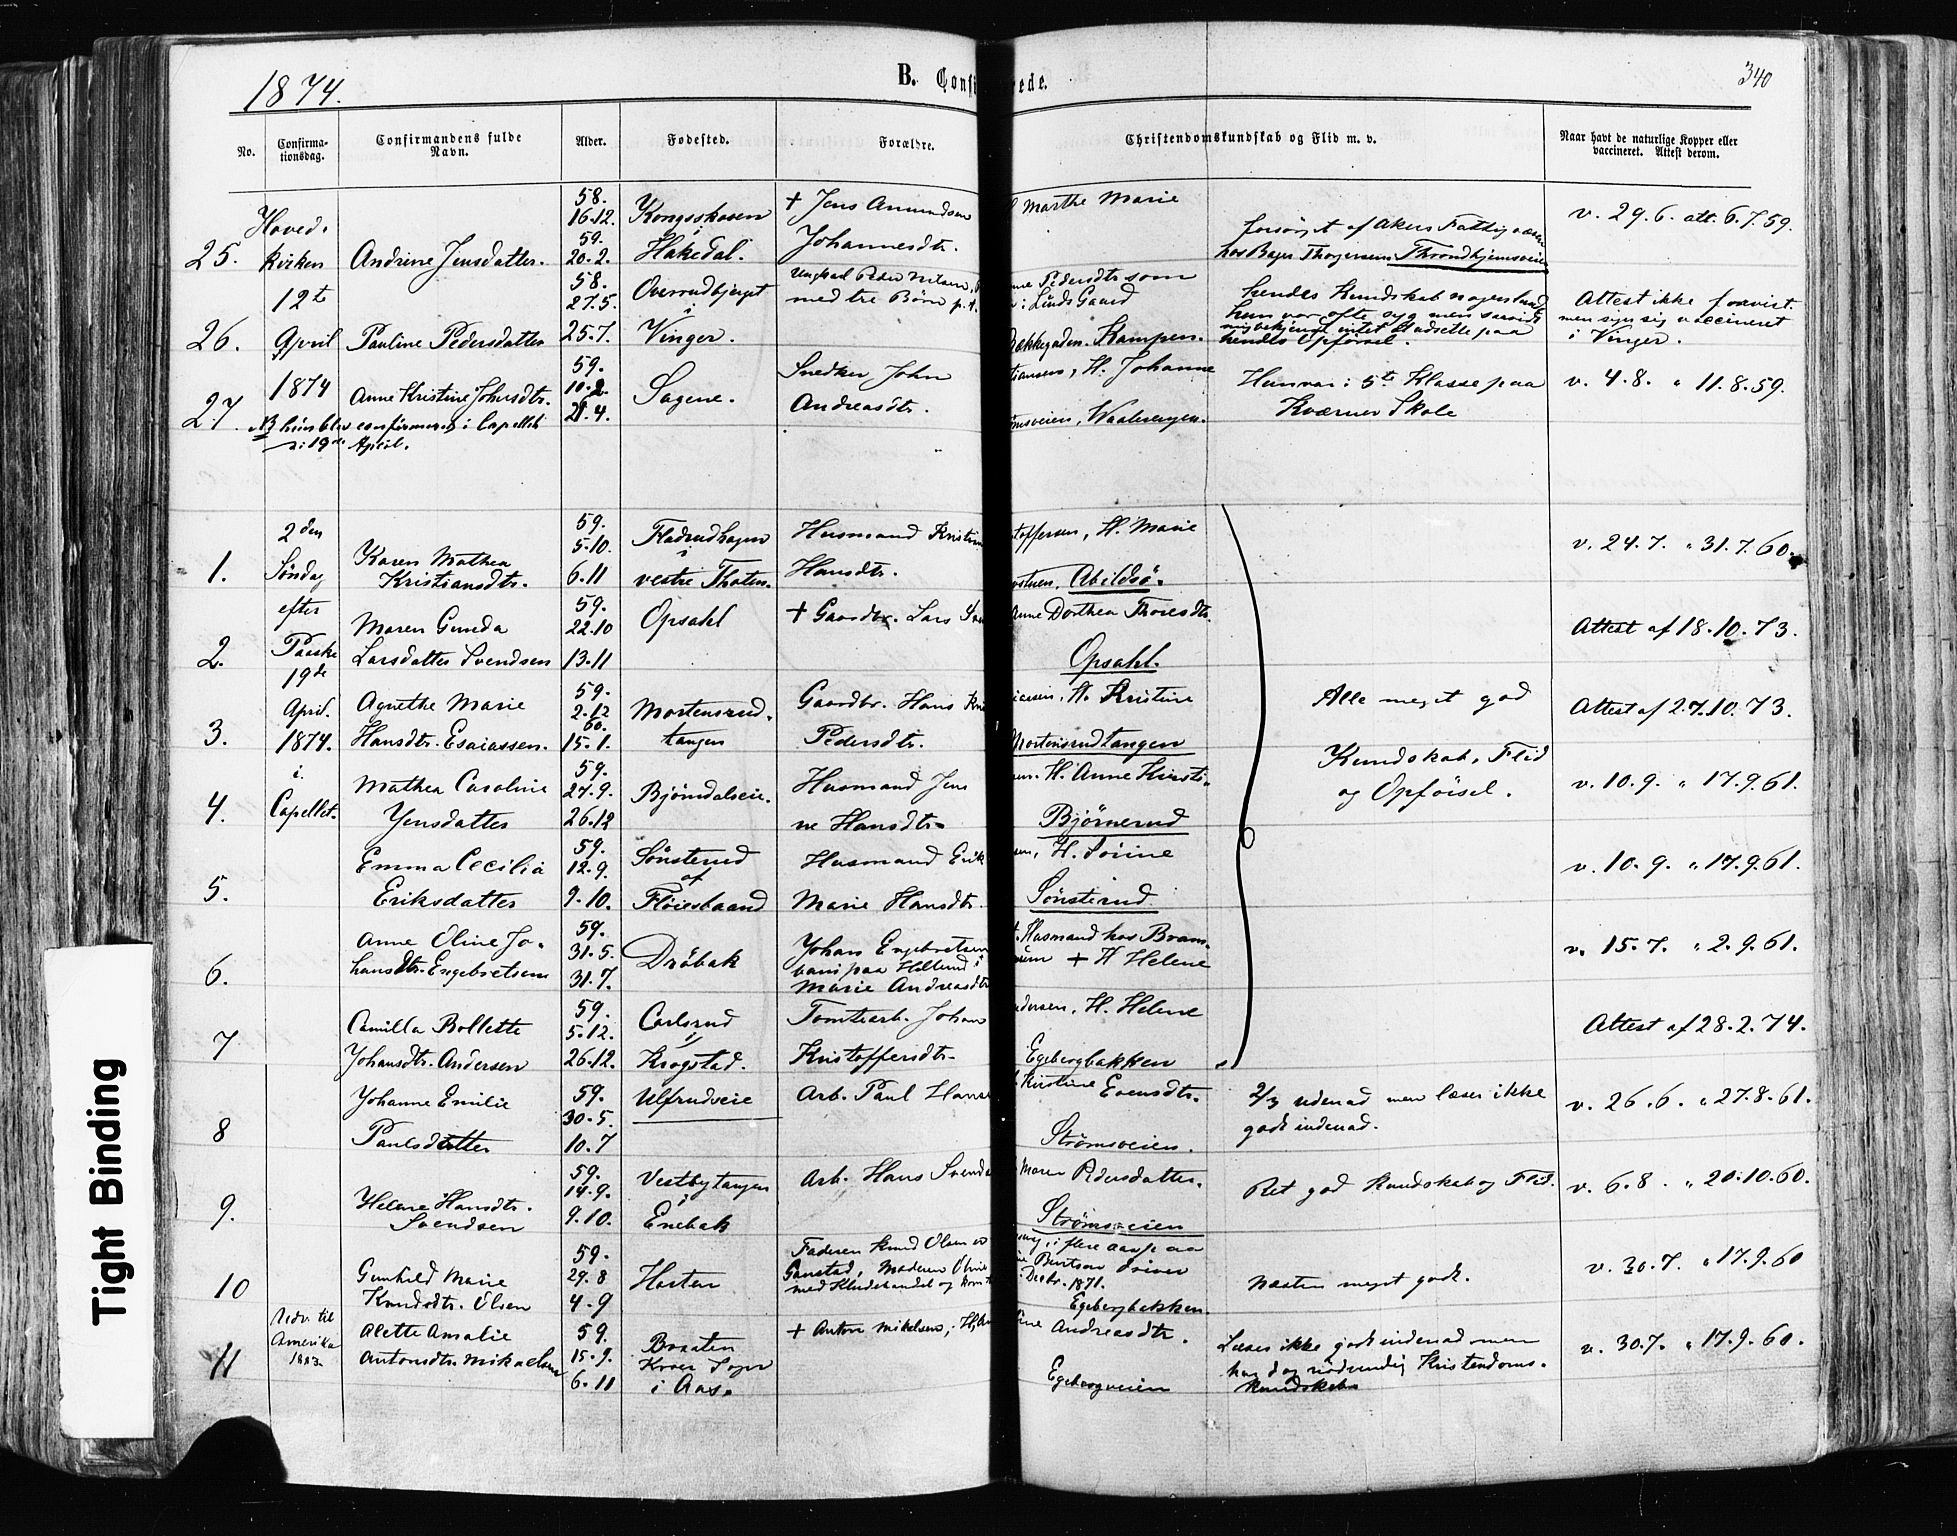 1874.
B. Confi
rede.
340
No.
Confirma-
tionsdag.
Confirmandens fulde
Navn.
Alder.
Fødested.
Forældre.
Christendomskundskab og Flid m. v.
Naar havt de naturlige Kopper eller
vaccineret. Attest derom.
25.
Hoved-
kirken
Andrine Jensdatter.
58.
16.12.
59.
20.2.
Hakedal.
+ Jens Amundsen
Johannesdtr.
Marthe Marie
forsørget af Akers
hos Bager Thorgersen Throndhjemsveien
v. 29.6. att. 6.7.59.
26.
12te
April
Pauline Pedersdatter
58.
27.5.
25.7.
Overudbjerget
i
Vinger.
med tre Børn p.t.
Pedersdtr som
i Linds Gaard
Kampen.
hendes Kundskab
hun var ofte syg men
intet at udsette paa
hendes Opførsel.
Attest ikke forevist
men siger sig vaccineret
i Vinger.
27.
1874
Anne Kristine Johnsdtr.
59.
10.2.
21.4.
Sagene.
Snedker John
Andreasdtr.
tiansen, H. Johanne
msveien, Waalerengen.
Hun var i 5te Klasse paa
Kværner Skole
v. 4.8. " 11.8.59.
NB hun blev confirmeret i Capellet
19de April.
1.
2den
Søndag
Karen Mathea
Kristiansdtr.
59.
5.10.
6.11
Fladrudhagen
i
vestre Thoten.
Husmand Kristian
Hansdtr.
stoffersen, H. Marie
Abildsö.
v. 24.7. " 31.7.60.
2.
efter
Paaske
19de
Maren Gunda
Larsdatter Svendsen
59.
22.10
13.11
Opsahl
+ Gaardbr. Lars Sven
Anne Dorthea Thoresdtr.
Opsahl.
Attest af 18.10.73.
3.
April.
1874.
Agnethe Marie
Hansdtr. Esaiassen.
59.
2.12
60.
15.1.
Mortensrud-
tangen
Gaardbr. Hans
Pedersdtr.
H. Kristine
Mortensrudtangen
Alle meget god
Kundskab, Flid
og Opførsel.
Attest af 27.10.73.
4.
i
Capellet.
Mathea Caroline
Jensdatter
59.
27.9.
26.12
Bjørndalseie.
Husmand Jens
ne Hansdtr.
sen. H. Anne Kirsti-
Bjørnerud
v. 10.9. " 17.9.61.
5.
Emma Cecilia
Eriksdatter
59.
12.9.
9.10.
Sønsterud
af
Husmand Erik
Marie Hansdtr.
sen, H. Sörine
Sønsterud
v. 10.9. " 17.9.61.
6.
Anne Oline Jo-
hansdtr. Engebretsen
59.
31.5.
31.7.
Dröbak
Johan Engebretsen
Marie Andreasdtr
Husmand hos Bram-
+ H Helene
v. 15.7. " 2.9.61.
7
Camilla Bollette
Johansdtr. Andersen
59.
5.12.
26.12.
Carlsrud
i
Krogstad.
Tomtearb. Johan
Kristoffersdtr.
ndersen, H. Helene
Egebergbakken
Attest af 28.2.74.
8
Johanne Emilie
Paulsdatter
59.
30.5.
10.7
Ulfrudveie
Arb. Paul Hans
Kirstine Evensdtr.
Strømsveien.
2/3 udenad men læser ikke
godt indenad.
v. 26.6. " 27.8.61.
9.
Helene Hansdtr.
Svendsen
59.
14.9.
9.10.
Vestbytangen
i
Enebak
Arb. Hans Svends
Maren Pedersdatter.
Strømsveien
Ret god Kundskab og Flid.
v. 6.8. " 20.10.60.
10
Gunhild Marie
Knudsdtr. Olsen
59.
29.8
4.9
Faderen Knud Olsen
Moderen Oline
med Kludehandel og
i flere Aar paa
Berntsen
Decbr. 1871.
Egebergbakken.
Næsten meget godt.
v. 30.7. " 17.9.60
11
Udv. til
Amerika
1883.
Alette Amalie
Antonsdtr. Mikaelsen
59.
15.9.
6.11
Braaten
Kroer Sogn
i Aas.
+ Anton Mikelsen,
ine Andreasdtr.
Egebergveien
Læser ikke godt indenad men
har dog nødvendig Kristendoms-
kundskab
v. 30.7. " 17.9.60.
Tight Binding